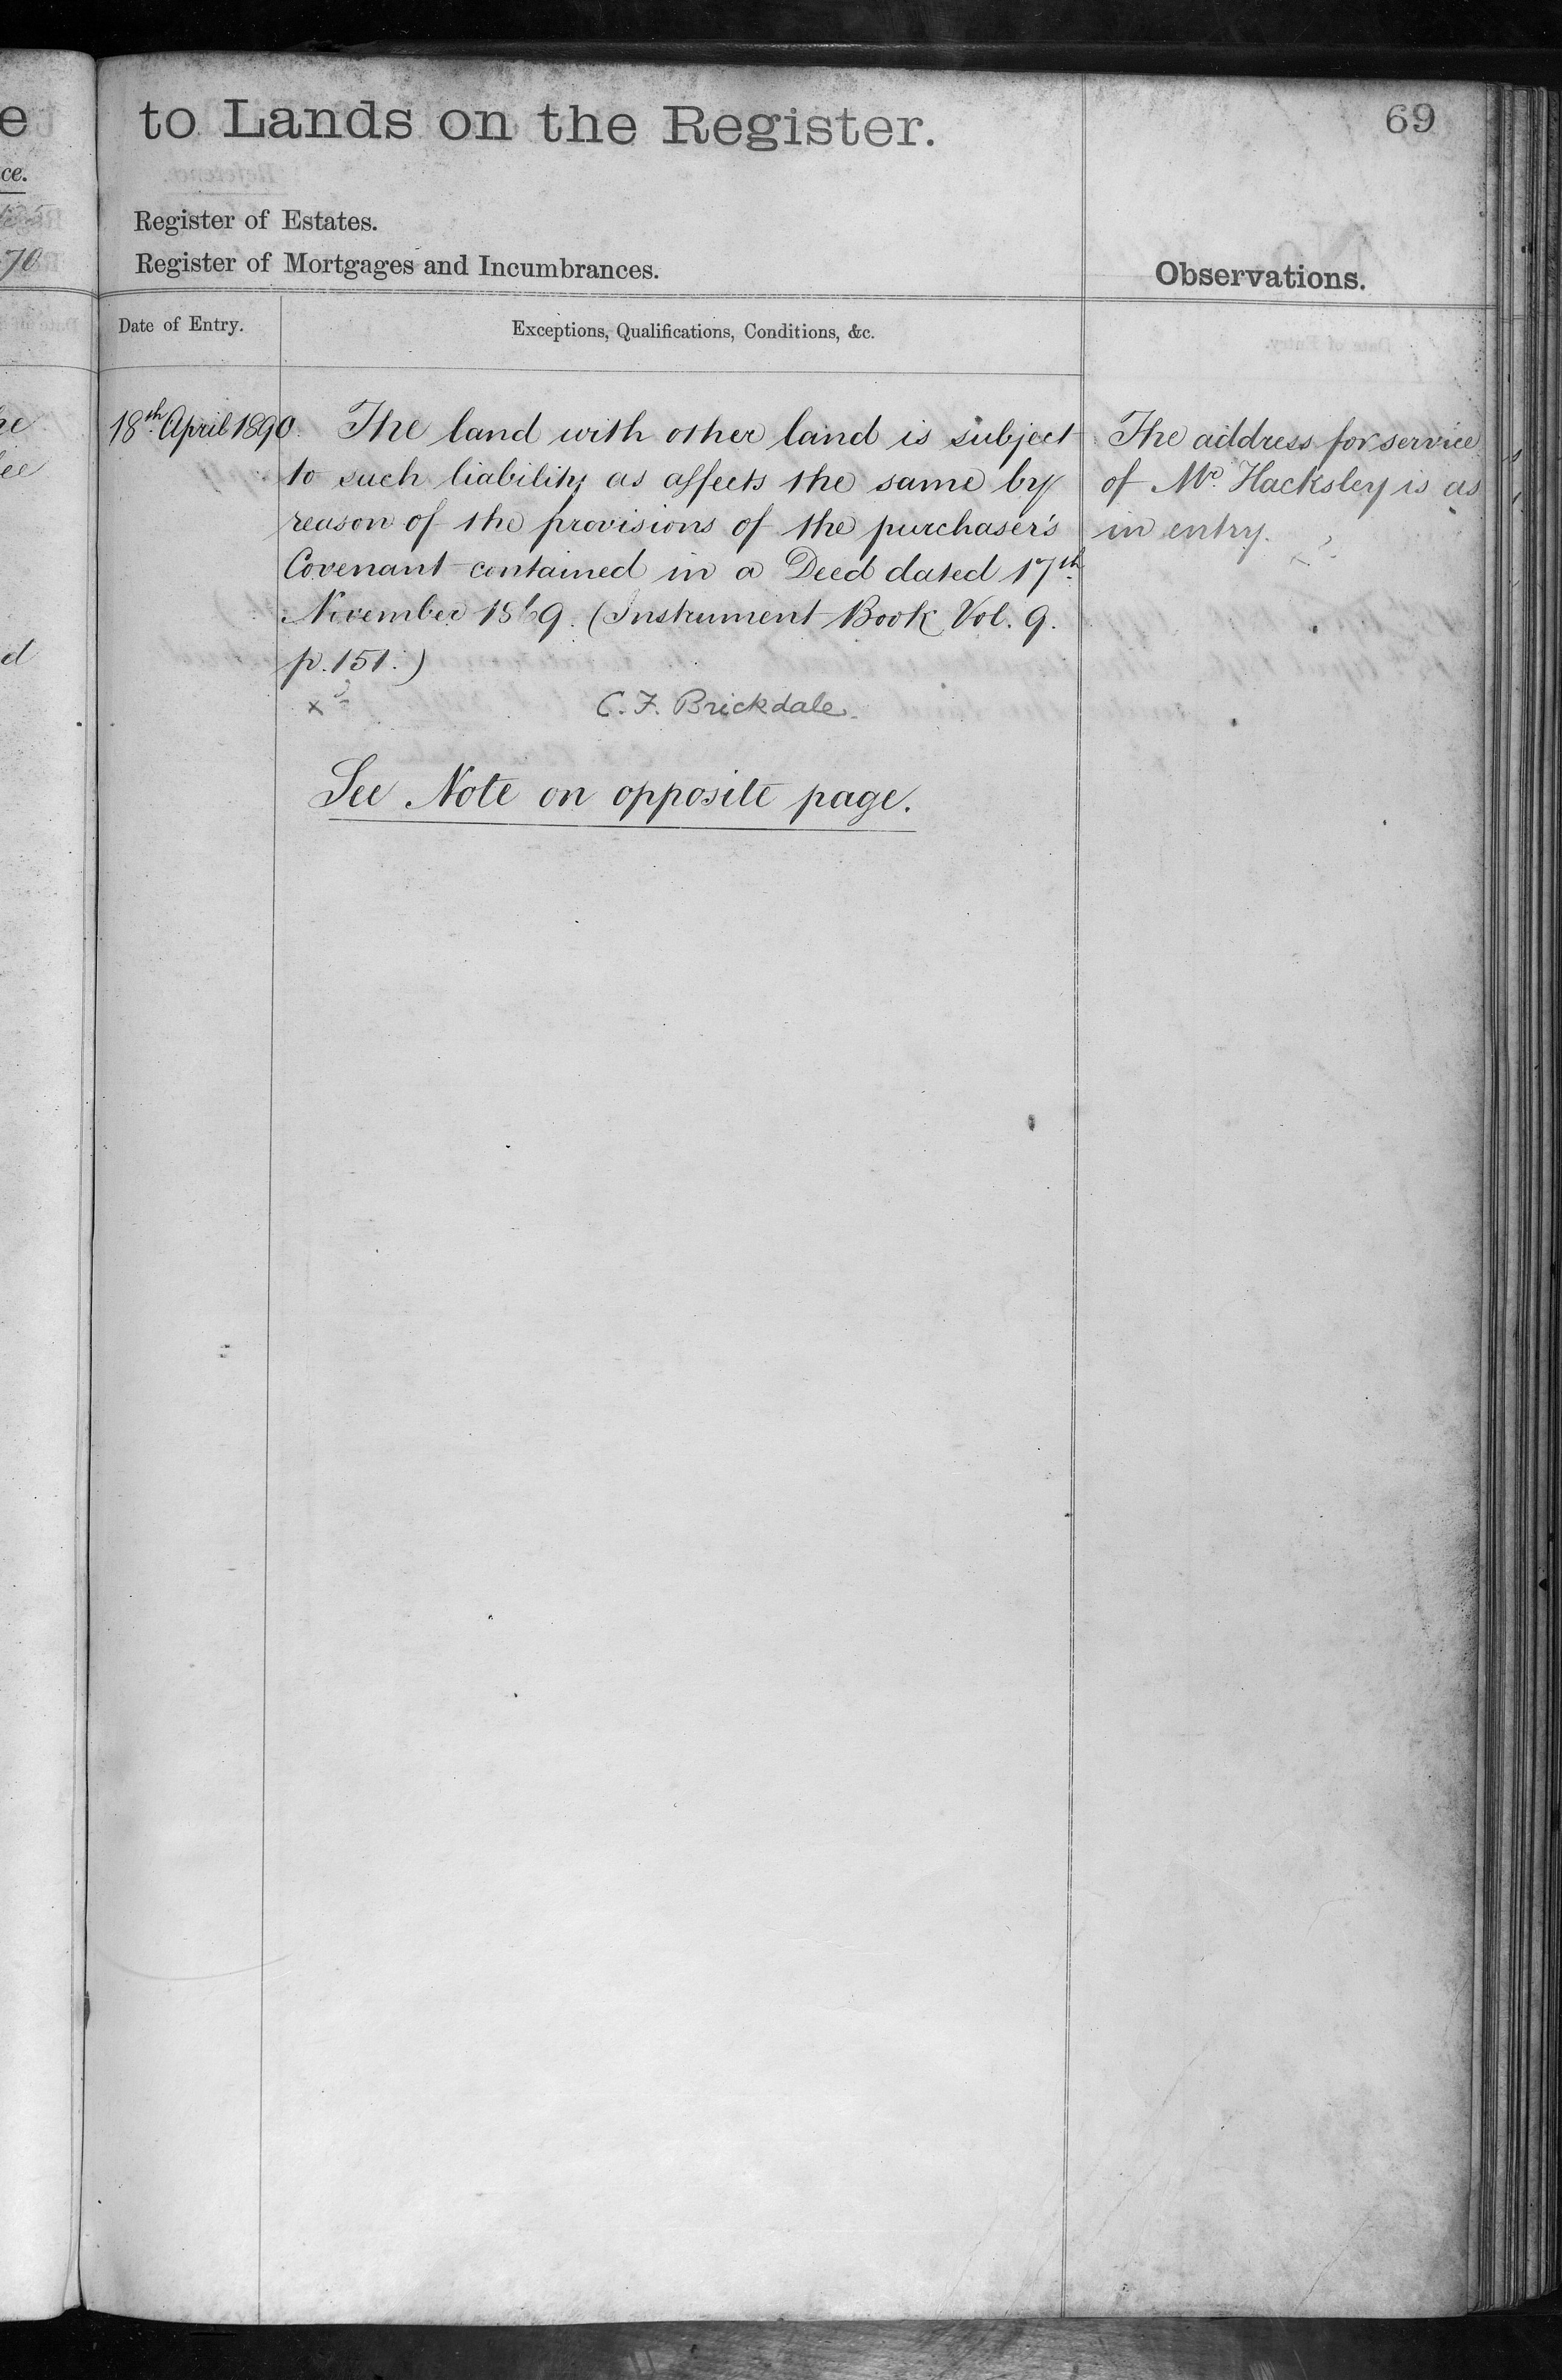 to Lands on the Register.
69
Register of Estates.
Register of Mortgages and Incumbrances.
Observations.
Date of Entry.
Exceptions, Qualifications, Conditions, &c.
18th April 1890.
The land with other land is subject
to such liability as affects the same by
reason of the provisions of the purchaser's
Covenant contained in a Deed dated 17th
November 1869. (Instrument Book Vol. 9.
p. 151.)
C. F. Brickdale.
See Note on opposite page.
The address for service
of Mr. Hacksley is as
in entry.